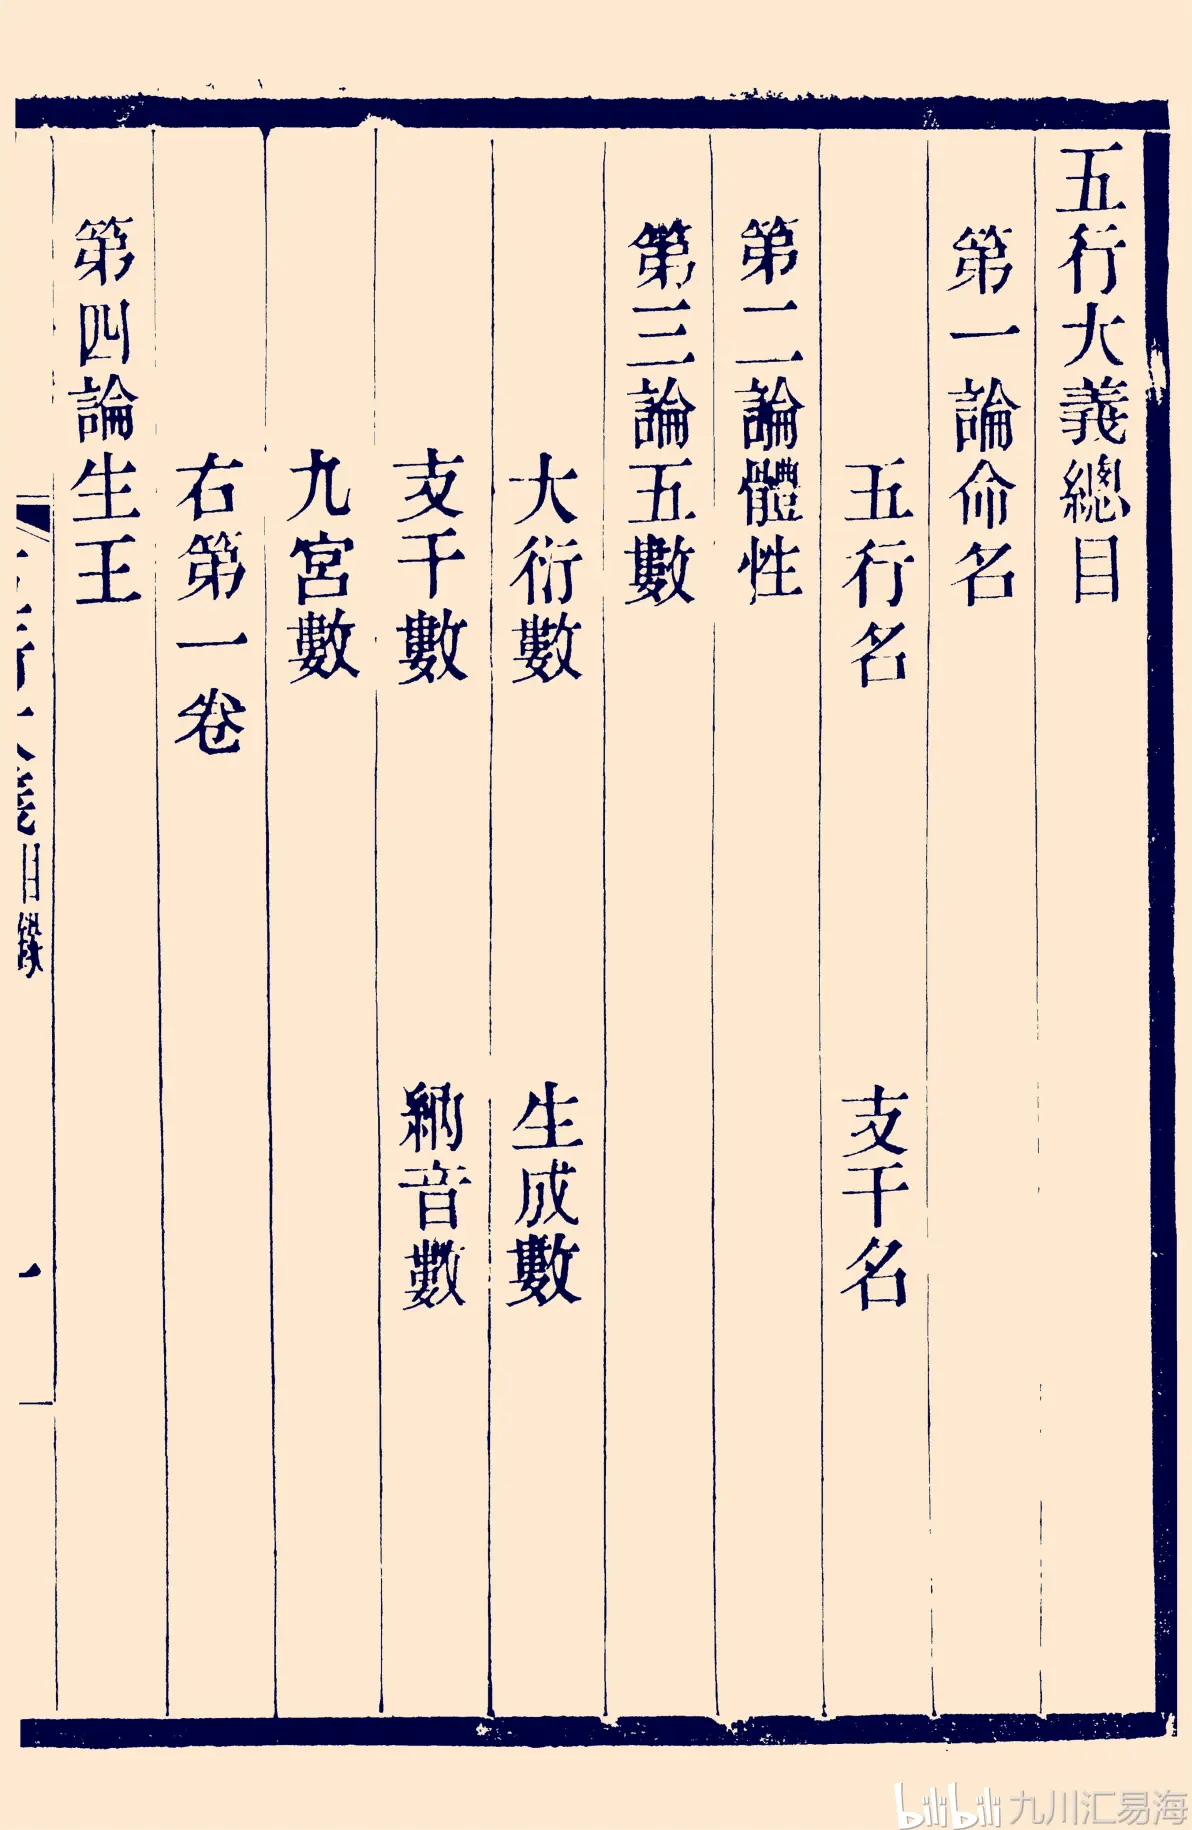 五行大義總目
第一論命名
五行名 支干名
第二論體性
第三論五數
大衍數 生成數
支干數 納音數
九宮數
右第一卷
第四論生王
五行大義目錄 一
bilibili 九川汇易海